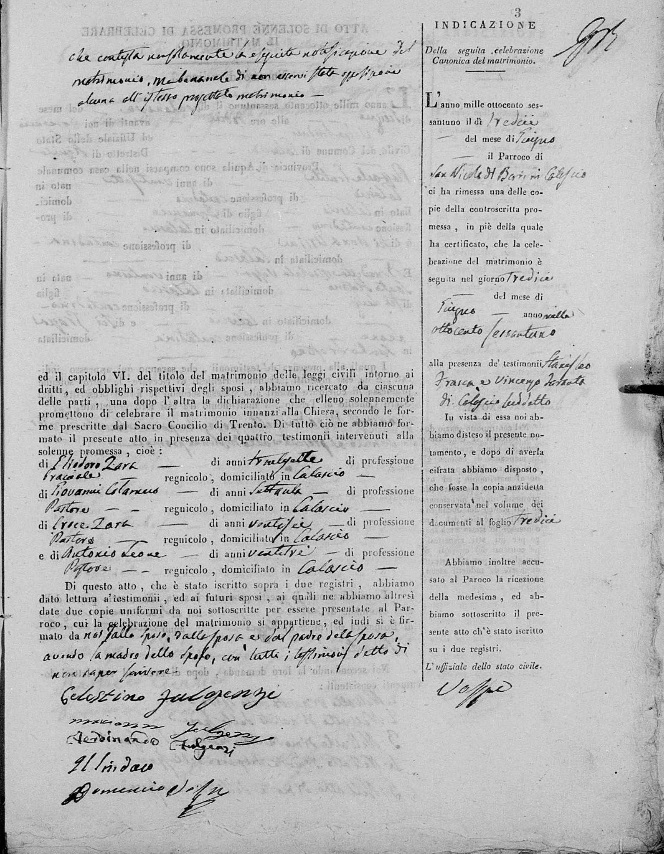 3
che contesta
matrimonio, di non esservi stata opposizione
alcuna all' istesso progettato matrimonio —
ed il capitolo VI. del titolo del matrimonio delle leggi civili intorno ai
dritti, ed obblighi rispettivi degli sposi, abbiamo ricercato da ciascuna
delle parti, una dopo l'altra la dichiarazione che elleno solennemente
promettono di celebrare il matrimonio innanzi alla Chiesa, secondo le for-
me prescritte dal Sacro Concilio di Trento. Di tutto ciò ne abbiamo for-
mato il presente atto in presenza dei quattro testimonii intervenuti alla
solenne promessa, cioè:
di Eliodoro Zara — di anni di professione
regnicolo, domiciliato in Calascio
di Giovanni di anni settanta — di professione
Pastore — regnicolo, domiciliato in Calascio —
di Croce Zara — di anni — di professione
Pastore — regnicolo, domiciliato in Calascio —
e di Antonio Leone — di anni ventitre — di professione
Pastore — regnicolo, domiciliato in Calascio —
Di questo atto, che è stato iscritto sopra i due registri, abbiamo
dato lettura a'testimonii, ed ai futuri sposi, ai quali ne abbiamo altresì
date due copie uniformi da noi sottoscritte per essere presentate al Par-
roco, cui la celebrazione del matrimonio si appartiene, ed indi si è fir-
mato da noi dallo sposo, dalla sposa e dal padre della sposa,
avendo la madre dello sposo, con tutti i testimonj detto di
non saper scrivere —
Celestino Fulgenzi
Fulgenzi
Ferdinando Fulgenzi
Il Sindaco
Domenico
INDICAZIONE
Della seguita celebrazione
Canonica del matrimonio.
L'anno mille ottocento ses-
santuno il dì tredici
— del mese di Giugno
— il Parroco di
San Nicola di Bari in Calascio
ci ha rimessa una delle co-
pie della controscritta pro-
messa, in piè della quale
ha certificato, che la cele-
brazione del matrimonio è
seguita nel giorno tredici
— del mese di
Giugno — anno mille
ottocento sessantuno
alla presenza de' testimonii Stanislao
Frasca e Vincenzo
di Calascio suddetto
In vista di esso noi ab-
biamo disteso il presente no-
tamento, e dopo di averla
cifrata abbiamo disposto,
che fosse la copia anzidetta
conservata nel volume dei
documenti al foglio tredici
Abbiamo inoltre accu-
sato al Paroco la ricezione
della medesimo, ed ab-
biamo sottoscritto il pre-
sente atto ch'è stato iscritto
su i due registri.
L'uffiziale dello stato civile.